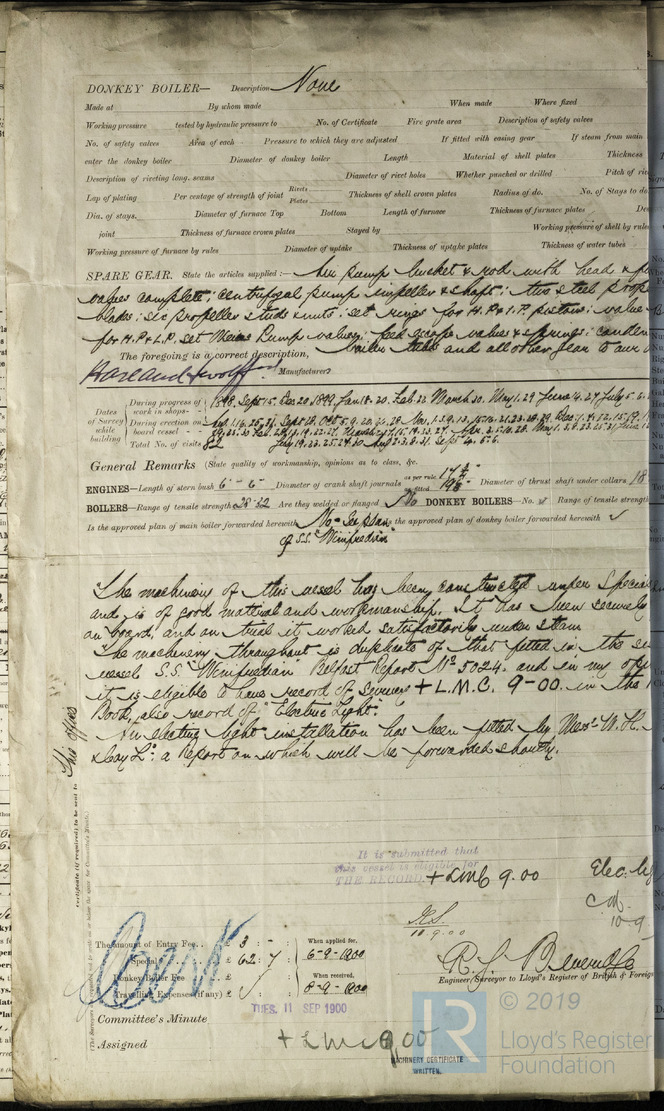 DONKEY BOILER— Description None
Made at By whom made When made Where fixed
Working pressure tested by hydraulic pressure to No. of Certificate Fire grate area Description of safety valves
No. of safety valves Area of each Pressure to which they are adjusted If fitted with easing gear If steam from main
enter the donkey boiler Diameter of donkey boiler Length Material of shell plates Thickness
Description of riveting long. seams Diameter of rivet holes Whether punched or drilled Pitch of riv
Lap of plating Per centage of strength of joint Rivets Plates Thickness of shell crown plates Radius of do. No. of Stays to do
Dia. of stays. Diameter of furnace Top Bottom Length of furnace Thickness of furnace plates De
joint Thickness of furnace crown plates Stayed by Working pressure of shell by rules
Working pressure of furnace by rules Diameter of uptake Thickness of uptake plates Thickness of water tubes
SPARE GEAR. State the articles supplied:— Air pump bucket & rod with head &
valves complete: centrifugal pump impeller & shaft: two steel prop
blades: six propeller studs & nuts: set rings for H.P. & I.P. pistons: valve
for H.P. & L.P. set Mains Pump valves: feed escape valves & springs: conden
boiler tubes and all other gear to our
The foregoing is a correct description,
Harland & Wolff Manufacturer.
Dates of Survey while building
During progress of work in shops— 1898. Sept 15. Dec 20. 1899. Jan 18. 20. Feb 22 March 30. May 1. 29 June 14. 27. July 5. 6.
During erection on board vessel—
Total No. of visits 82 July 19. 23. 25. 27. 30 Aug 2. 3. 8. 31. Sept 4. 5. 6.
General Remarks (State quality of workmanship, opinions as to class, &c.
ENGINES—Length of stern bush 6-6 Diameter of crank shaft journals as per rule as fitted Diameter of thrust shaft under collars 18
BOILERS—Range of tensile strength 28-32 Are they welded or flanged No DONKEY BOILERS—No. Range of tensile strength
Is the approved plan of main boiler forwarded herewith No - See plans Is the approved plan of donkey boiler forwarded herewith ✓
of S.S. "Winifredian"
The machinery of this vessel has been constructed under Special
and is of good material and workmanship. It has been securely
on board, and on trial it worked satisfactorily under steam.
The machinery throughout is duplicate of that fitted in the
vessel S.S. "Winifredian" Belfast Report No 5024. and in my opi
it is eligible to have record of survey + L.M.C. 9-00. in the
Book, also record of "Electric Light".
An electric light installation has been fitted by Messrs W. H.
& Coy Ld: a Report on which will be forwarded shortly.
Certificate (if required) to be sent to This office
It is submitted that
this vessel is eligible for
THE RECORD. + LMC 9.00
Elec. Lig
10-9
10 9.00
The amount of Entry Fee.. £ 3 : - :
Special £ 62 : 7 :
Donkey Boiler Fee £
Travelling Expenses (if any) £
When applied for, 6-9-1900
When received, 8-9-1900
Engineer Surveyor to Lloyd's Register of British & Foreign
TUES. 11 SEP 1900
Committee's Minute
Assigned + LMC 9.00
MACHINERY CERTIFICATE
WRITTEN.
LR
© 2019
Lloyd's Register
Foundation